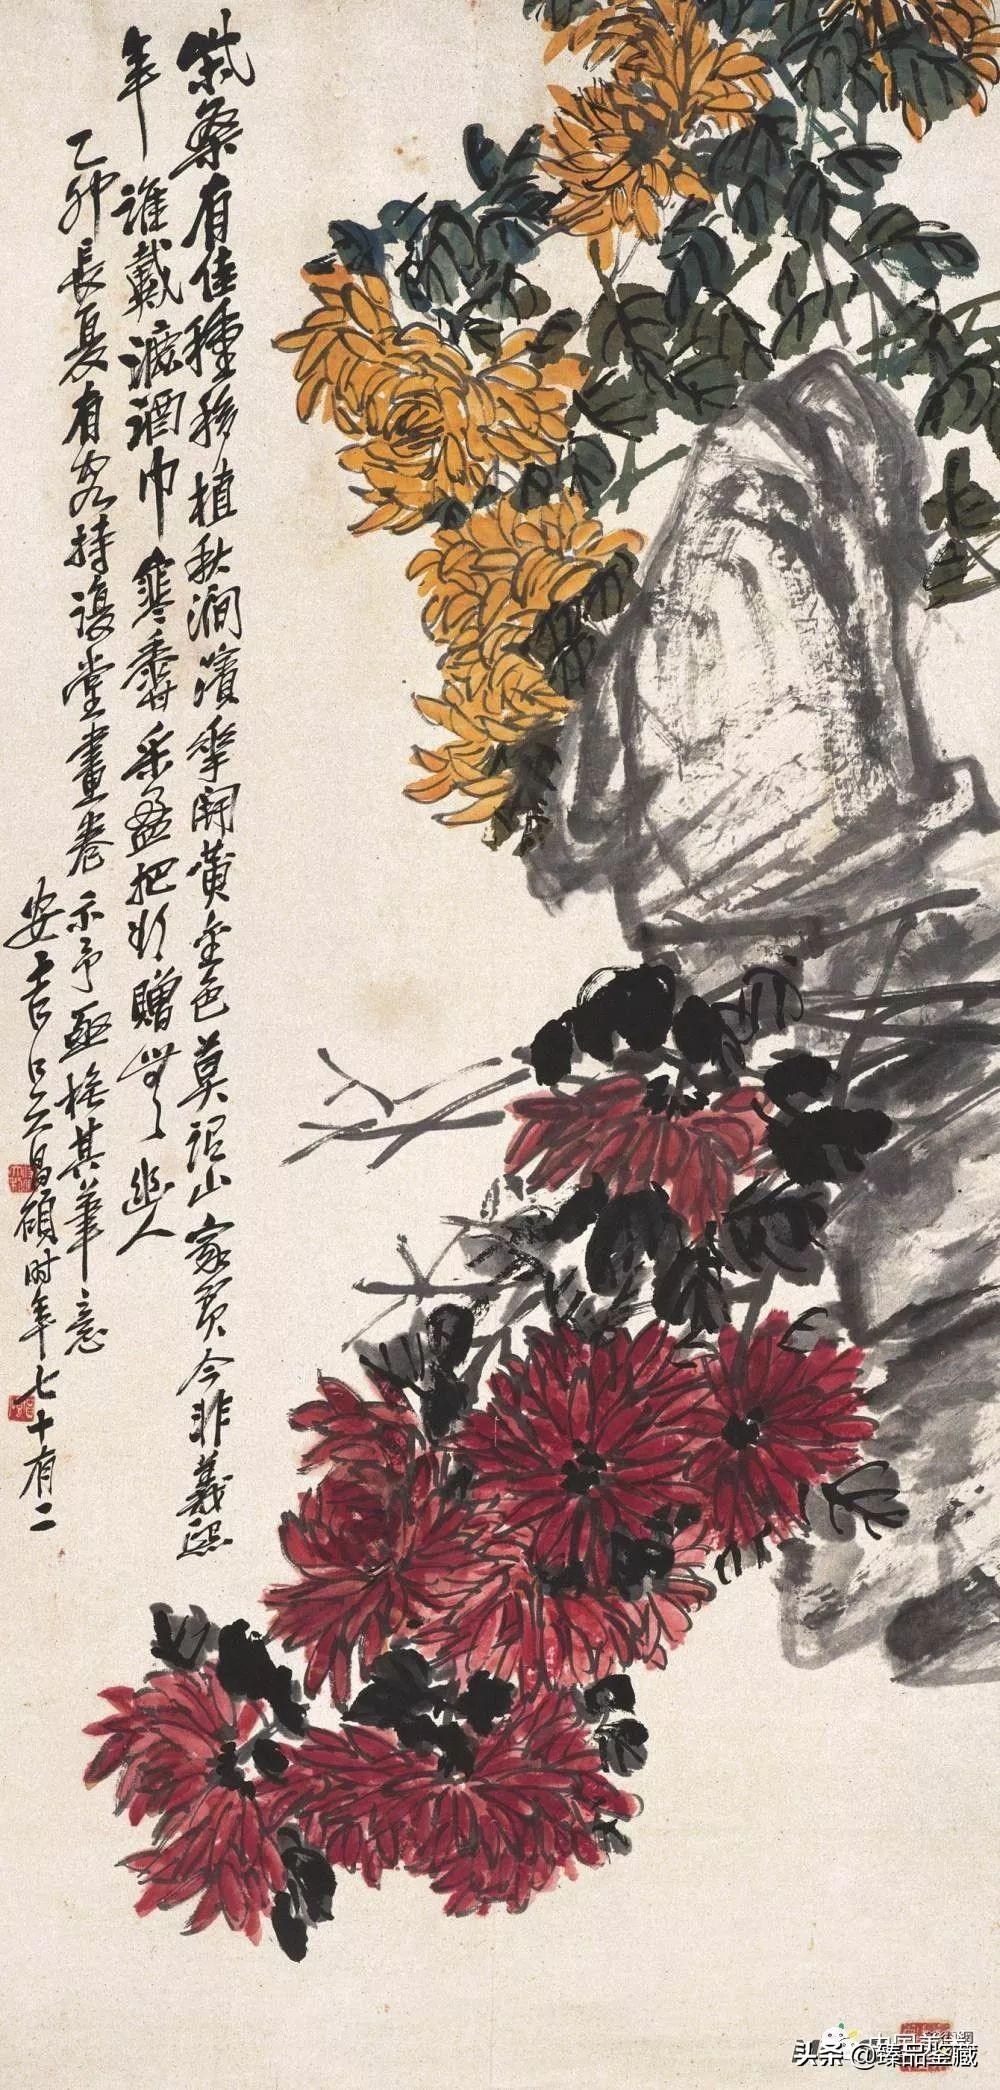 柴桑有佳種移植秋澗濱華開黃金色莫山家貧今非義熙
年誰戴漉酒巾寒香采盈把贈幽人
乙卯長夏有客持復堂畫卷示予亟橅其筆意
安吉吳昌碩时年七十有二
头条 @臻品鉴藏